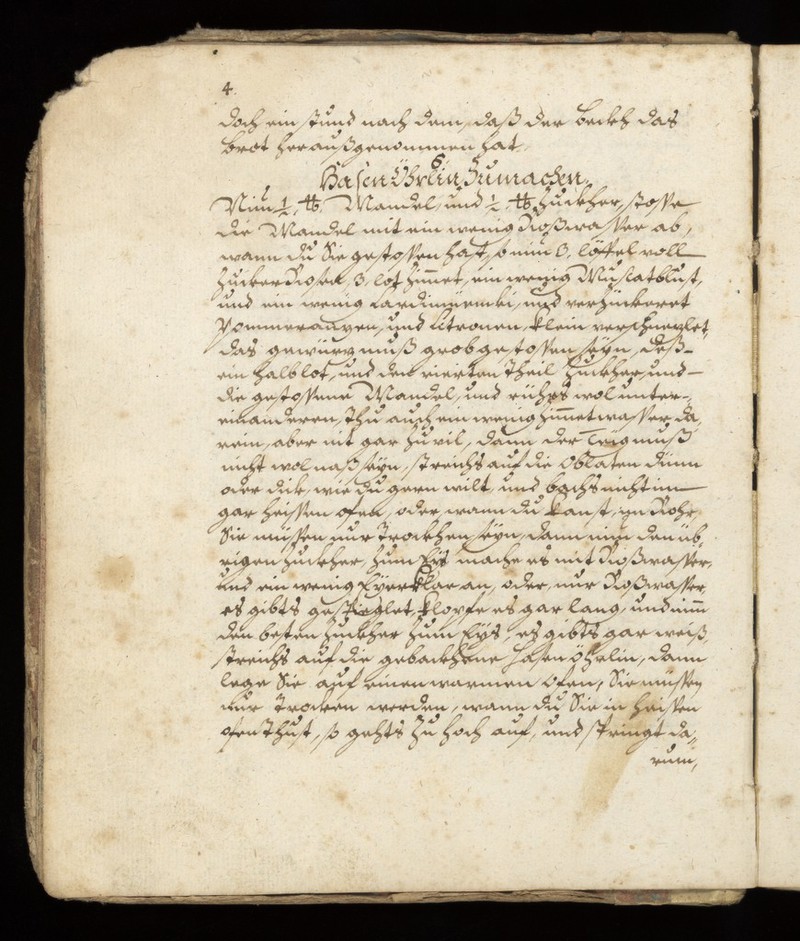 4.
doch ein stund nach dem, daß der beckh das
brot heraußgenommen hat.
6.
Hasen Öhrlin Zumachen.
Nim ½ ℔. Mandel, und ½ ℔ Zuckher, stosse
die Mandel mit ein wenig Roßwasser ab,
wann du Sie gestossen hast, so nim 3. löffel voll
Zucker Rosen, 3. lot Zimet, ein wenig Muscatblust,
und ein wenig Cardimüembi, und verzuckeret
Pommeranzen, und Citronen, klein verschnezlet,
das gewürz muß grob gestossen seyn, deß
ein halb lot, und den vierten theil Zuckher, und
die gestossene Mandel, und rührs wol unter-
einanderen, thu auch ein wenig Zimetwasser da,
rein, aber nit gar zu vil, dann der Teig muß
nicht wol naß seyn, streichs auf die Oblaten dünn
oder dick, wie du gern wilt, und bachs nicht im
gar heissen ofen, oder, wann du kanst, im Rohr,
Sie müssen nur Trockhen seyn, dann nim den üb,
rigen Zuckher, zum Eys mache es mit Roßwasser,
und ein wenig Eyerklar an, oder, nur Roßwasser,
es gibts gespieglet, klopfe es gar lang, und nim
den besten Zuckher zum Eys, es gibts gar weiß,
streichs auf die gebackhene Hasen Öhrlin, dann
lege Sie auf einen warmen ofen, Sie müssen
nur Trocken werden, wann du Sie in heissen
ofen thust, so gehts zu hoch auf, und springt da,
rum,